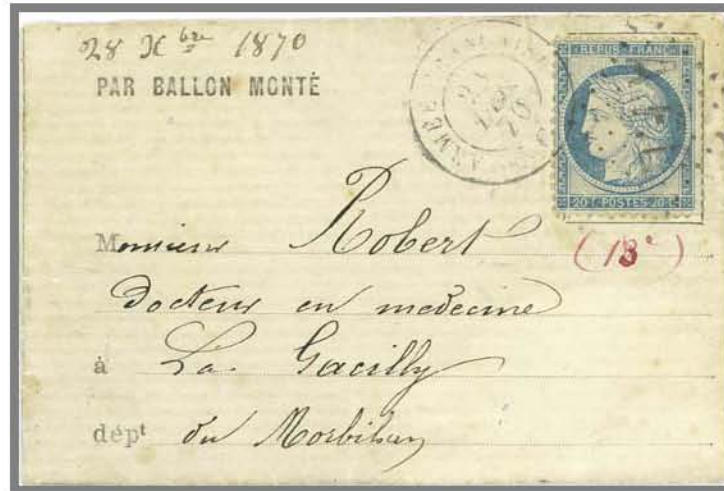 28 Xbre 1870
PAR BALLON MONTÉ
RÉPUB. FRANC.
20 C POSTES 20 C
(18e)
Monsieur Robert
docteur en medecine
à La Gacilly
dépt du Morbihan